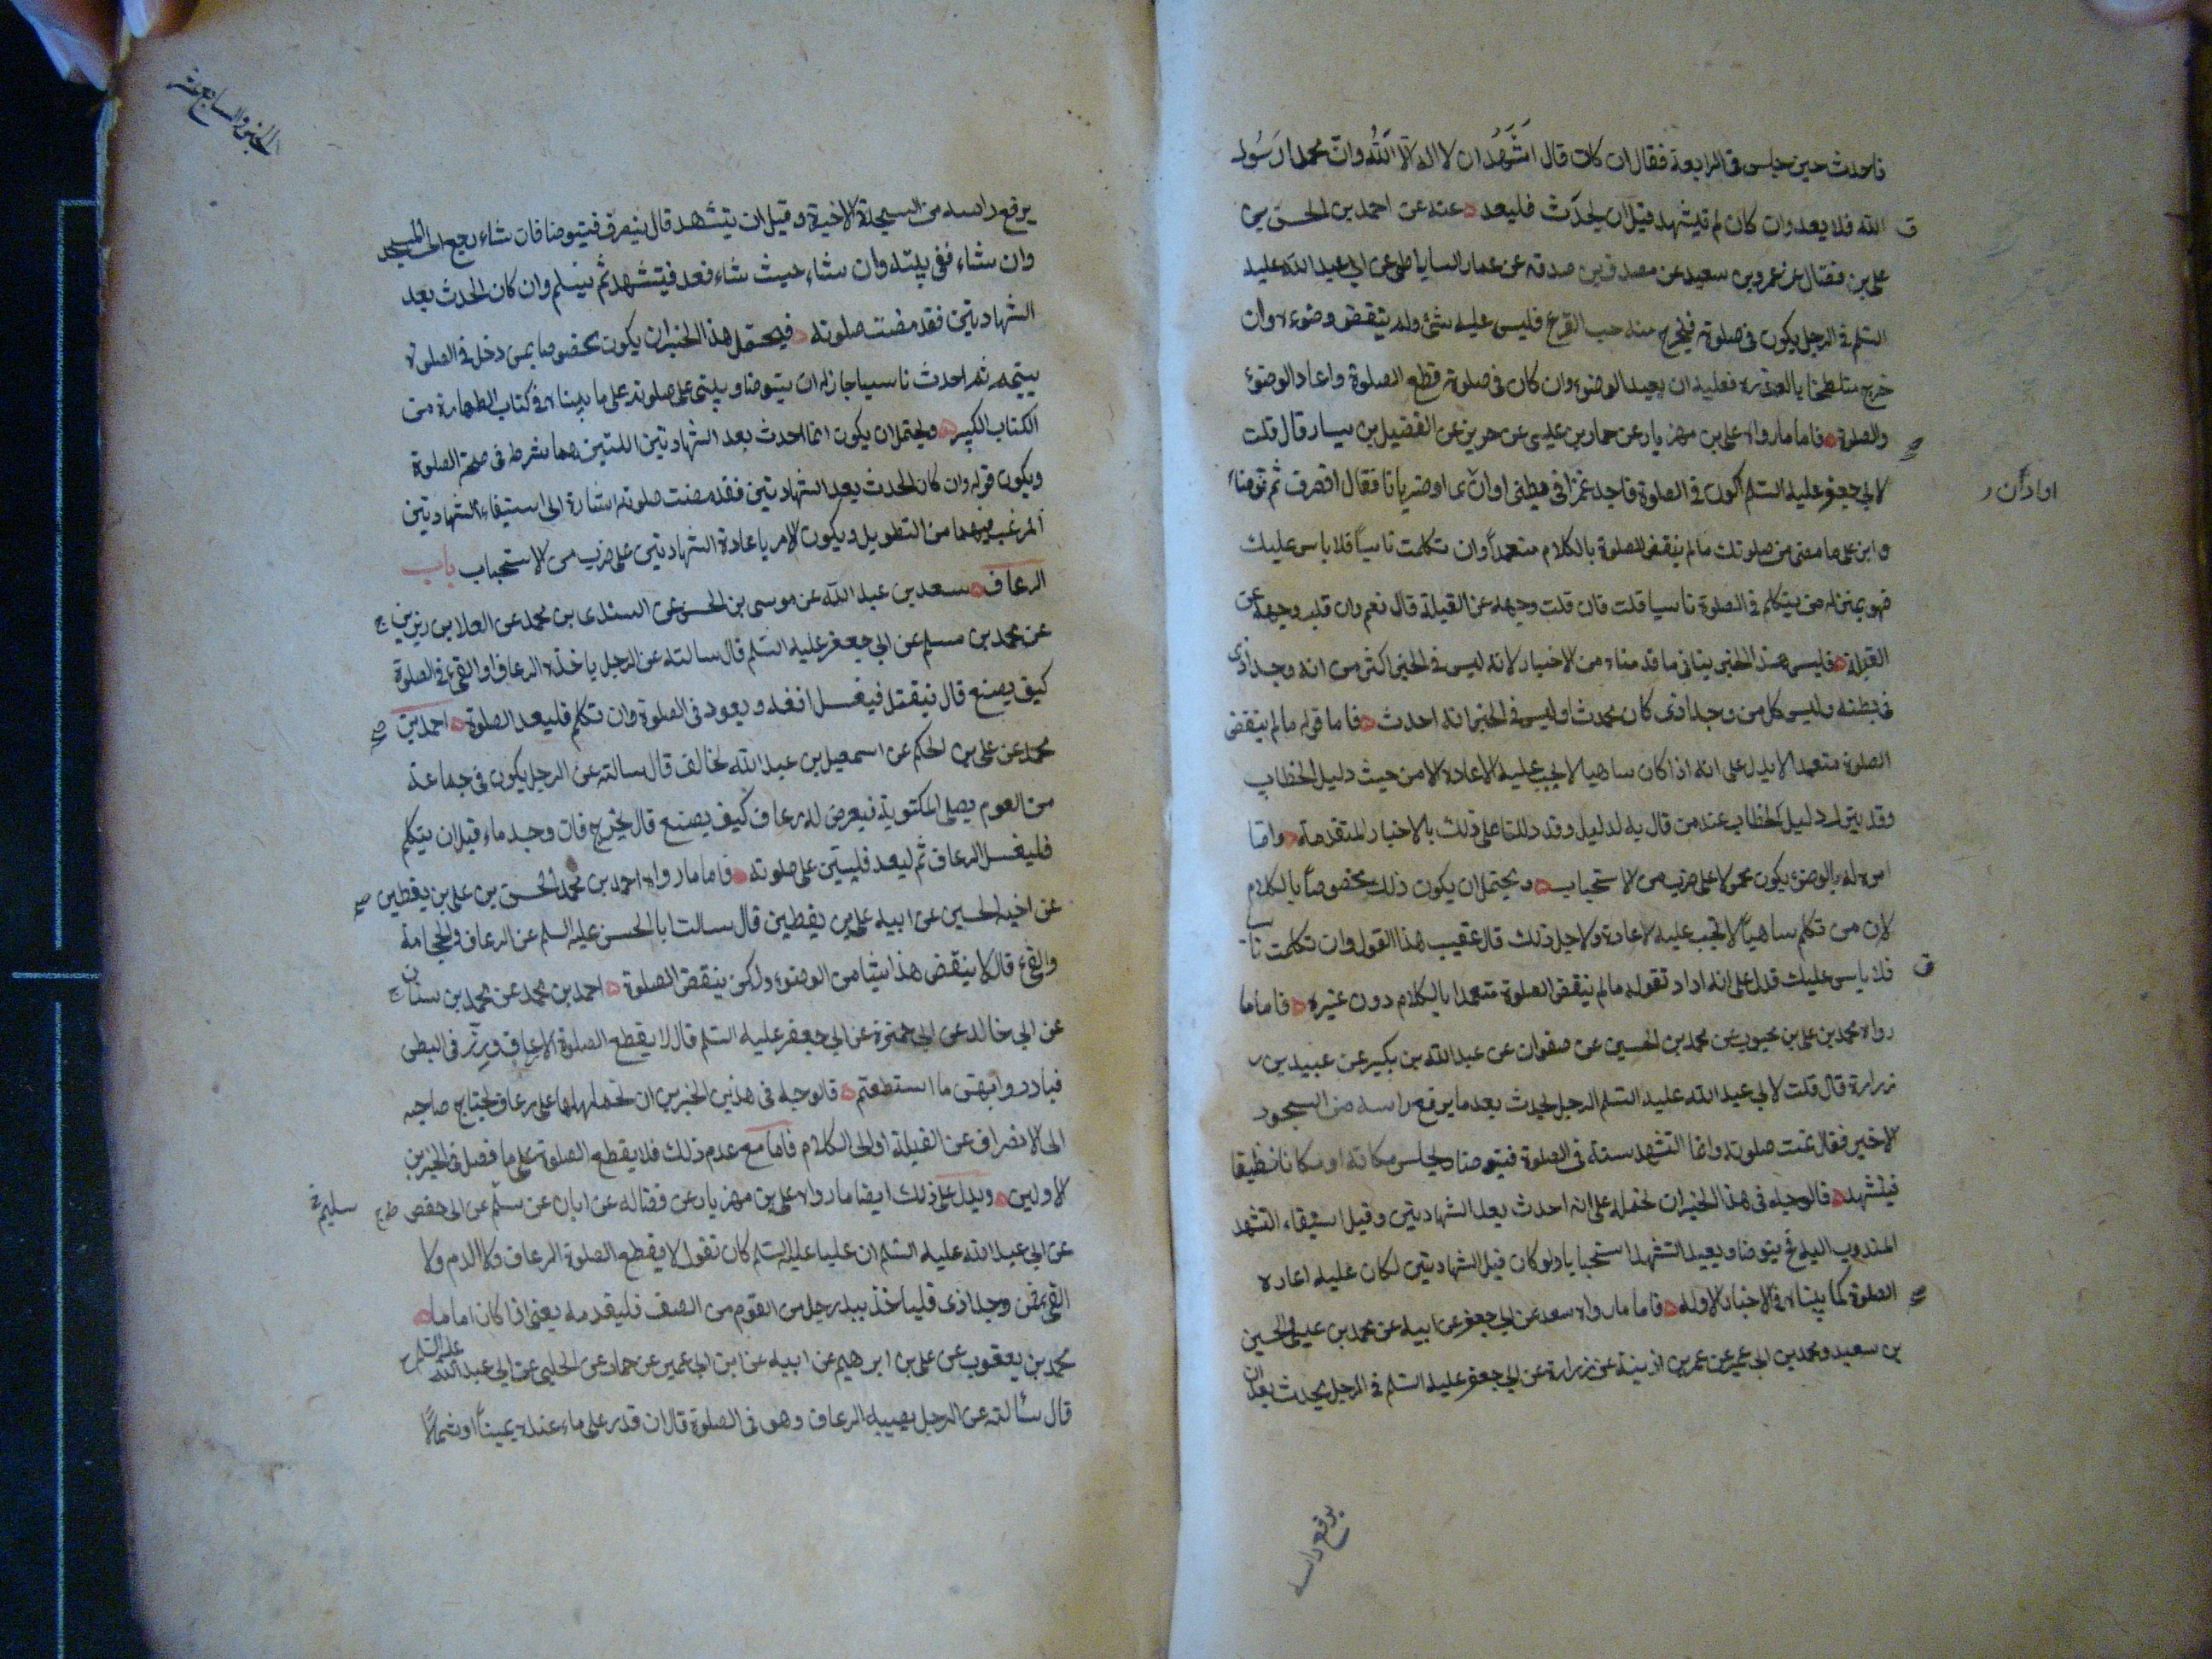 فاحدث حين جلس في الرابعة فقال ان كان قال اَشْهَدُ ان لا اله الّا اللّه وانّ محمدا رَسُول
الله فلا يعد وان كان لم يتشهد قبل ان يحدّث فليعد عنه عن احمد بن الحسن بن
ق
علي بن فضال عن عمرو بن سعيد عن مصدق بن صدقه عن عمار الساباطي عن ابي عبد الله عليه
السلم في الرجل يكون في صلوته فيخرج منه حب القرع فليس عليه شئ ولم ينقض وضوءه وان
خرج متلطخا بالعذره فعليه ان يعيد الوضوء وان كان في صلوته قطع الصلوة واعاد الوضوء
والصلوة فاما ما رواه علي بن مهزيار عن حماد بن عيسى عن حريز عن الفضيل بن يسار قال قلت
صح
لابي جعفر عليه السلم اكون في الصلوة فاجد غمزا في بطني او ازّى او ضربانا فقال انصرف ثم توضاء
او ازّا ن ر
وابن على ما مضى من صلوتك ما لم ينقض الصلوة بالكلام متعمداً وان تكلمت ناسياً فلا باس عليك
فهو بمنزله من يتكلم في الصلوة ناسيا قلت فان قلب وجهه عن القبلة قال نعم وان قلب وجهه عن
القبلة فليس هذ الخبر ينافي ما قدمناه من الاخبار لانه ليس في الخبر اكثر من انه وجد اذى
في بطنه وليس كل من وجد اذى كان محدثا وليس في الخبر انه احدث فاما قوله ما لم ينقض
الصلوة متعمدا لا يدل على انه اذا كان ساهيا لا يجب عليه الاعادة الا من حيث دليل الخطاب
وقد يترك دليل الخطاب عند من قال به لدليل وقد دللنا على ذلك بالاخبار المتقدمة واما
امره له بالوضوء يكون محمولا على ضرب من الاستحباب ويحتمل ان يكون ذلك مخصوصاً بالكلام
لان من تكلم ساهياً لا تجب عليه الاعادة ولاجل ذلك قال عقيب هذا القول وان تكلمت نا سيا
فلا باس عليك فدل على انه اراد بقوله ما لم ينقض الصلوة متعمدا بالكلام دون غيره فاما ما
ق
رواه محمد بن علي بن محبوب عن محمد بن الحسين عن صفوان عن عبد الله بن بكير عن عبيد بن
زرارة قال قلت لابي عبد الله عليه السلم الرجل يحدث بعد ما يرفع راسه من السجود
الاخير فقال تمت صلوته وانما التشهد سنة في الصلوة فيتوضا ويجلس مكانه او مكانا نظيفا
فيتشهد فالوجه في هذا الخبر ان نحمله على انه احدث بعد الشهادتين وقبل استيفاء التشهد
المندوب اليه فح يتوضا ويعيد التشهد استحبابا ولو كان قبل الشهادتين لكان عليه اعادة
الصلوة كما بيناه في الاخبار الاوله فاما ما رواه سعد عن ابي جعفر عن ابيه عن محمد بن عيسى والحسين
صح
بن سعيد ومحمد بن ابي عمير عن عمر بن اذينة عن زرارة عن ابي جعفر عليه السلم في الرجل يحدث بعد ان
يرفع راسه
الجزو السابع عشر
يرفع راسه من السجدة الاخيرة وقبل ان يتشهد قال ينصرف فيتوضا فان شاء رجع الى المسجد
وان شاء ففي بيته وان شاء حيث شاء قعد فيتشهد ثم يسلم وان كان الحدث بعد
الشهادتين فقد مضت صلوته فيحتمل هذا الخبر ان يكون مخصوصا بمن دخل في الصلوة
بتيمم ثم احدث ناسيا جاز له ان يتوضا ويبنى على صلوته على ما بيناه في كتاب الطهارة من
الكتاب الكبير ويحتمل ان يكون انما احدث بعد الشهادتين اللتين هما شرط في صحة الصلوة
ويكون قوله وان كان الحدث بعد الشهادتين فقد مضت صلوته اشارة الى استيفاء الشهادتين
المرغب فيهما من التطويل ويكون الامر باعادة الشهادتين على ضرب من الاستحباب باب
الرعاف سعد بن عبد الله عن موسى بن الحسن عن السندى بن محمد عن العلا بن رزين
ج
عن محمد بن مسلم عن ابي جعفر عليه السلم قال سالته عن الرجل ياخذه الرعاف او القئ في الصلوة
كيف يصنع قال ينفتل فيغسل انفه ويعود في الصلوة وان تكلم فليعد الصلوة احمد بن
صح
محمد عن علي بن الحكم عن اسمعيل بن عبد الخالق قال سالته عن الرجل يكون في جماعة
من القوم يصلى المكتوبة فيعرض له رعاف كيف يصنع قال يخرج فان وجد ماء قبل ان يتكلم
فليغسل الرعاف ثم ليعد فليبن على صلوته فاما ما رواه احمد بن محمد الحسن بن علي بن يقطين
صح
عن اخيه الحسين عن ابيه علي بن يقطين قال سالت ابا الحسن عليه السلم عن الرعاف والحجامة
والقئ قال لا ينقض هذا شيئا من الوضوء ولكن ينقض الصلوة احمد بن محمد عن محمد بن سنان
ج
عن ابي خالد عن ابي حمزة عن ابي جعفر عليه السلم قال لا يقطع الصلوة الا رعاف ورزّ في البطن
فبادروا بهن ما استطعتم فالوجه في هذين الخبرين ان نحملهما على رعاف يحتاج صاحبه
الى الانصراف عن القبلة او الى الكلام فاما مع عدم ذلك فلا يقطع الصلوة على ما فصل في الخبرين
الاولين ويدل على ذلك ايضا ما رواه علي بن مهزيار عن فضاله عن ابان عن سلم عن ابي حفص
سليم خ
عن ابي عبد الله عليه السلم ان عليا عليه السلم كان يقول لا يقطع الصلوة الرعاف ولا الدم ولا
القئ فمن وجد اذى فلياخذ بيد رجل من القوم من الصف فليقدمه يعنى اذا كان اماما
محمد بن يعقوب عن علي بن ابرهيم عن ابيه عن ابن ابي عمير عن حماد عن الحلبي عن ابي عبد الله عليه السلم
قال سألته عن الرجل يصيبه الرعاف وهو في الصلوة قال ان قدر على ماء عنده يميناً او شمالًا